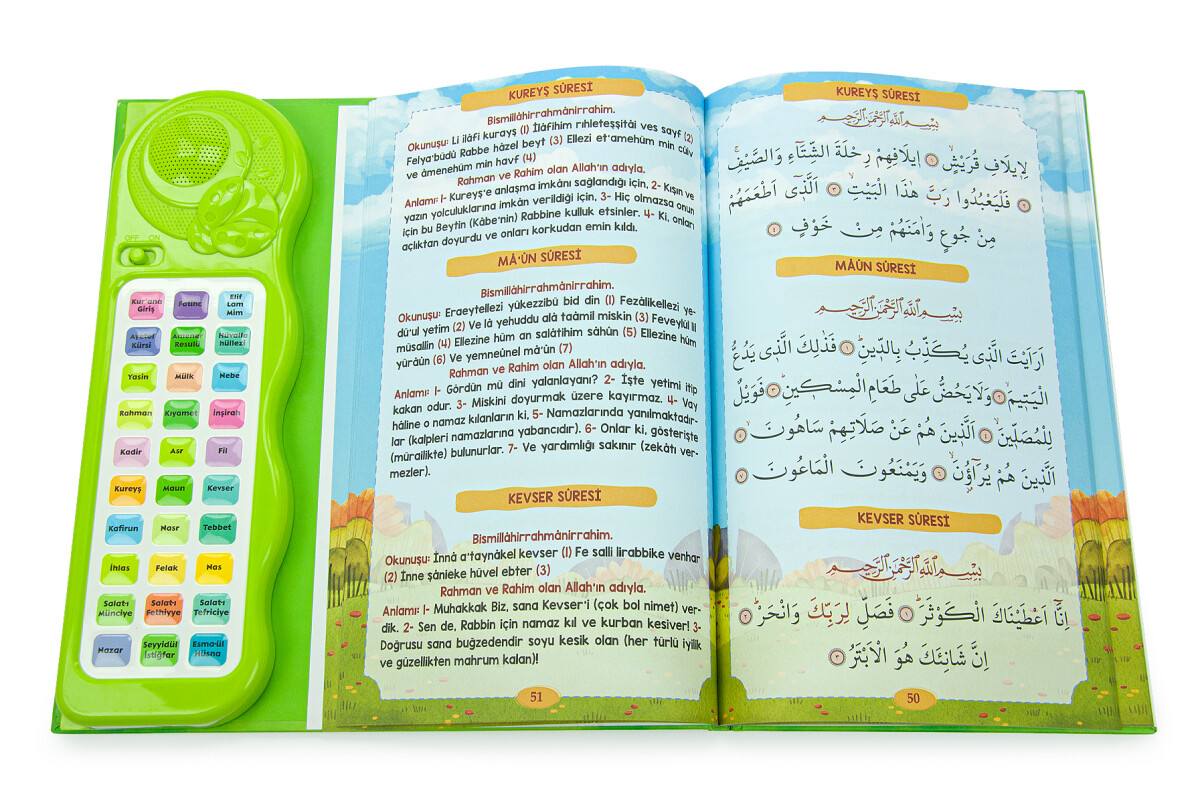 OFF ON
Kur'ana
Giriş
Fatiha
Elif
Lam
Mim
Ayetel
Kürsi
Amener
Resulü
Hüvalla
hüllezi
Yasin
Mülk
Nebe
Rahman
Kıyamet
İnşirah
Kadir
Asr
Fil
Kureyş
Maun
Kevser
Kafirun
Nasr
Tebbet
İhlas
Felak
Nas
Salat-ı
Münciye
Salat-ı
Fethiyye
Salat-ı
Tefriciye
Nazar
Seyyidül
İstiğfar
Esma-ül
Hüsna
KUREYŞ SÛRESİ
Bismillâhirrahmânirrahim.
Okunuşu: Li ilâfi kurayş (1) İlâfihim rıhleteşşitâi ves sayf (2)
Felya'büdû Rabbe hâzel beyt (3) Ellezi et'amehüm min cûiv
ve âmenehüm min havf (4)
Rahman ve Rahim olan Allah'ın adıyla.
Anlamı: 1- Kureyş'e anlaşma imkânı sağlandığı için, 2- Kışın ve
yazın yolculuklarına imkân verildiği için, 3- Hiç olmazsa onun
için bu Beytin (Kâbe'nin) Rabbine kulluk etsinler. 4- Ki, onları
açlıktan doyurdu ve onları korkudan emin kıldı.
MÂ'ÛN SÛRESİ
Bismillâhirrahmânirrahim.
Okunuşu: Eraeytellezi yükezzibü bid din (1) Fezâlikellezi ye-
dü'ul yetim (2) Ve lâ yehuddu alâ taâmil miskin (3) Feveylül lil
müsallin (4) Ellezine hüm an salâtihim sâhûn (5) Ellezine hüm
yürâûn (6) Ve yemneûnel mâ'ûn (7)
Rahman ve Rahim olan Allah'ın adıyla.
Anlamı: 1- Gördün mü dini yalanlayanı? 2- İşte yetimi itip
kakan odur. 3- Miskini doyurmak üzere kayırmaz. 4- Vay
hâline o namaz kılanların ki, 5- Namazlarında yanılmaktadır-
lar (kalpleri namazlarına yabancıdır). 6- Onlar ki, gösterişte
(mürailikte) bulunurlar. 7- Ve yardımlığı sakınır (zekâtı ver-
mezler).
KEVSER SÛRESİ
Bismillâhirrahmânirrahim.
Okunuşu: İnnâ a'taynâkel kevser (1) Fe salli lirabbike venhar
(2) İnne şânieke hüvel ebter (3)
Rahman ve Rahim olan Allah'ın adıyla.
Anlamı: 1- Muhakkak Biz, sana Kevser'i (çok bol nimet) ver-
dik. 2- Sen de, Rabbin için namaz kıl ve kurban kesiver! 3-
Doğrusu sana buğzedendir soyu kesik olan (her türlü iyilik
ve güzellikten mahrum kalan)!
51
KUREYŞ SÛRESİ
بِسْمِ اللّٰهِ الرَّحْمٰنِ الرَّحِيمِ
لِاِيلَافِ قُرَيْشٍۙ ١ اِيلَافِهِمْ رِحْلَةَ الشِّتَٓاءِ وَالصَّيْفِۚ
٢ فَلْيَعْبُدُوا رَبَّ هٰذَا الْبَيْتِۙ ٣ اَلَّذٖٓى اَطْعَمَهُمْ
مِنْ جُوعٍ وَاٰمَنَهُمْ مِنْ خَوْفٍ ٤
MÂÛN SÛRESİ
بِسْمِ اللّٰهِ الرَّحْمٰنِ الرَّحِيمِ
اَرَاَيْتَ الَّذٖى يُكَذِّبُ بِالدّٖينِؕ ١ فَذٰلِكَ الَّذٖى يَدُعُّ
الْيَتٖيمَۙ ٢ وَلَا يَحُضُّ عَلٰى طَعَامِ الْمِسْكٖينِؕ ٣ فَوَيْلٌ
لِلْمُصَلّٖينَۙ ٤ اَلَّذٖينَ هُمْ عَنْ صَلَاتِهِمْ سَاهُونَۙ ٥
اَلَّذٖينَ هُمْ يُرَٓاؤُ۫نَۙ ٦ وَيَمْنَعُونَ الْمَاعُونَ ٧
KEVSER SÛRESİ
بِسْمِ اللّٰهِ الرَّحْمٰنِ الرَّحِيمِ
اِنَّٓا اَعْطَيْنَاكَ الْكَوْثَرَؕ ١ فَصَلِّ لِرَبِّكَ وَانْحَرْؕ ٢
اِنَّ شَانِئَكَ هُوَ الْاَبْتَرُ ٣
50